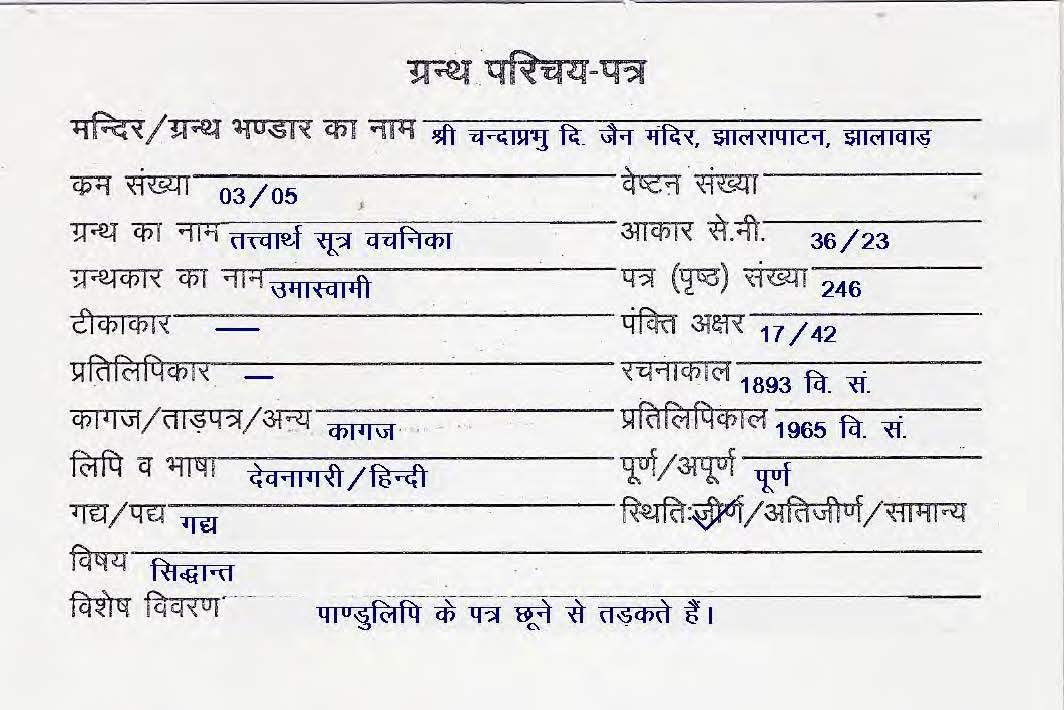 ग्रन्थ परिचय-पत्र
मन्दिर/ग्रन्थ भण्डार का नाम श्री चन्दाप्रभु दि. जैन मंदिर, झालरापाटन, झालावाड़
क्रम संख्या 03/05 वेष्टन संख्या
ग्रन्थ का नाम तत्त्वार्थ सूत्र वचनिका आकार से.मी. 36/23
ग्रन्थकार का नाम उमास्वामी पत्र (पृष्ठ) संख्या 246
टीकाकार — पंक्ति अक्षर 17/42
प्रतिलिपिकार — रचनाकाल 1893 वि. सं.
कागज/ताड़पत्र/अन्य कागज प्रतिलिपिकाल 1965 वि. सं.
लिपि व भाषा देवनागरी/हिन्दी पूर्ण/अपूर्ण पूर्ण
गद्य/पद्य गद्य स्थितिःजीर्ण/अतिजीर्ण/सामान्य
विषय सिद्धान्त
विशेष विवरण पाण्डुलिपि के पत्र छूने से तड़कते हैं।